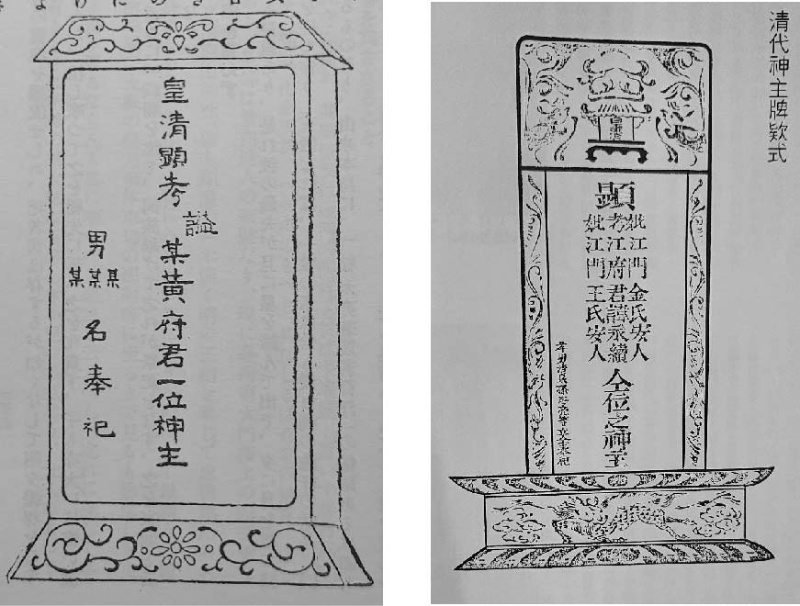 皇清顯考
諡
某黃府君一位神主
男
某某某
名奉祀
清代神主牌欵式
顯
妣江門金氏安人
考江府君諱永續
妣江門王氏安人
仝位之神主